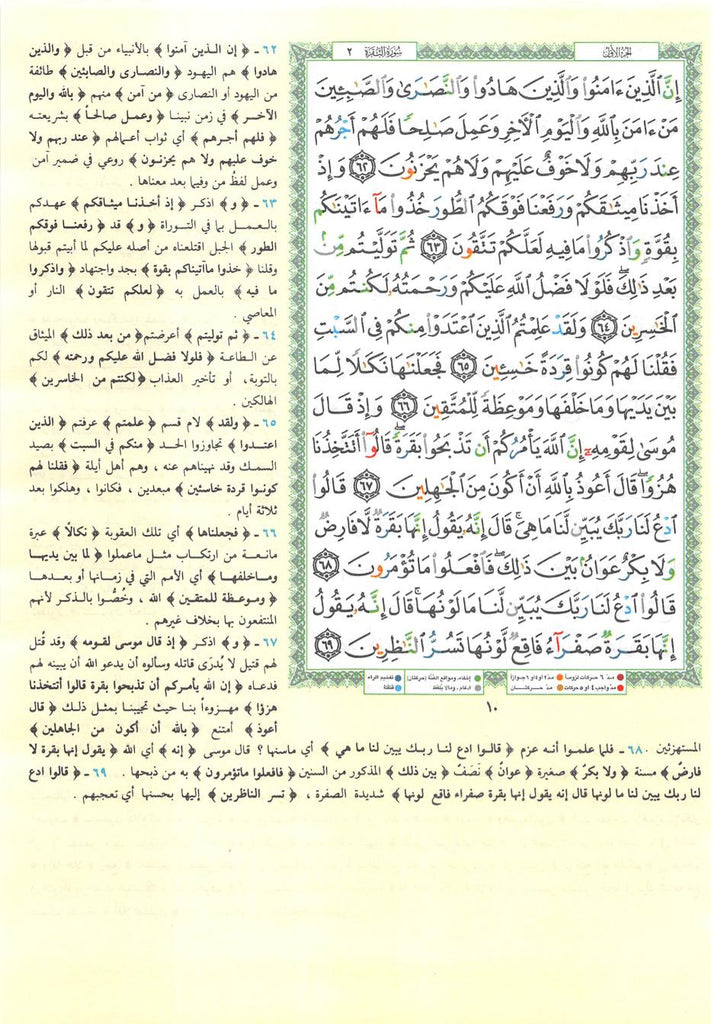 الجزء الأول
سورة البقرة ٢
إِنَّ ٱلَّذِينَ ءَامَنُوا۟ وَٱلَّذِينَ هَادُوا۟ وَٱلنَّصَـٰرَىٰ وَٱلصَّـٰبِـِٔينَ
مَنْ ءَامَنَ بِٱللَّهِ وَٱلْيَوْمِ ٱلْـَٔاخِرِ وَعَمِلَ صَـٰلِحًا فَلَهُمْ أَجْرُهُمْ
عِندَ رَبِّهِمْ وَلَا خَوْفٌ عَلَيْهِمْ وَلَا هُمْ يَحْزَنُونَ ٦٢ وَإِذْ
أَخَذْنَا مِيثَـٰقَكُمْ وَرَفَعْنَا فَوْقَكُمُ ٱلطُّورَ خُذُوا۟ مَآ ءَاتَيْنَـٰكُم
بِقُوَّةٍ وَٱذْكُرُوا۟ مَا فِيهِ لَعَلَّكُمْ تَتَّقُونَ ٦٣ ثُمَّ تَوَلَّيْتُم مِّنۢ
بَعْدِ ذَٰلِكَ ۖ فَلَوْلَا فَضْلُ ٱللَّهِ عَلَيْكُمْ وَرَحْمَتُهُۥ لَكُنتُم مِّنَ
ٱلْخَـٰسِرِينَ ٦٤ وَلَقَدْ عَلِمْتُمُ ٱلَّذِينَ ٱعْتَدَوْا۟ مِنكُمْ فِى ٱلسَّبْتِ
فَقُلْنَا لَهُمْ كُونُوا۟ قِرَدَةً خَـٰسِـِٔينَ ٦٥ فَجَعَلْنَـٰهَا نَكَـٰلًا لِّمَا
بَيْنَ يَدَيْهَا وَمَا خَلْفَهَا وَمَوْعِظَةً لِّلْمُتَّقِينَ ٦٦ وَإِذْ قَالَ
مُوسَىٰ لِقَوْمِهِۦٓ إِنَّ ٱللَّهَ يَأْمُرُكُمْ أَن تَذْبَحُوا۟ بَقَرَةً ۖ قَالُوٓا۟ أَتَتَّخِذُنَا
هُزُوًا ۖ قَالَ أَعُوذُ بِٱللَّهِ أَنْ أَكُونَ مِنَ ٱلْجَـٰهِلِينَ ٦٧ قَالُوا۟
ٱدْعُ لَنَا رَبَّكَ يُبَيِّن لَّنَا مَا هِىَ ۚ قَالَ إِنَّهُۥ يَقُولُ إِنَّهَا بَقَرَةٌ لَّا فَارِضٌ
وَلَا بِكْرٌ عَوَانٌۢ بَيْنَ ذَٰلِكَ ۖ فَٱفْعَلُوا۟ مَا تُؤْمَرُونَ ٦٨
قَالُوا۟ ٱدْعُ لَنَا رَبَّكَ يُبَيِّن لَّنَا مَا لَوْنُهَا ۚ قَالَ إِنَّهُۥ يَقُولُ
إِنَّهَا بَقَرَةٌ صَفْرَآءُ فَاقِعٌ لَّوْنُهَا تَسُرُّ ٱلنَّـٰظِرِينَ ٦٩
مد ٦ حركات لزوماً مد ٢ أو ٤ أو ٦ جوازاً إخفاء، ومواقع الغنة (حركتان) تفخيم الراء
مد واجب ٤ أو ٥ حركات مد حركتان إدغام، وما لا يلفظ قلقلة
١٠
٦٢ ـ ﴿ إن الـذين آمنوا ﴾ بالأنبياء من قبل ﴿ والذين
هادوا ﴾ هم اليهود ﴿ والنصارى والصابئين ﴾ طائفة
من اليهود أو النصارى ﴿ من آمن ﴾ منهم ﴿ بالله واليوم
الآخـر ﴾ في زمن نبينـا ﴿ وعمـل صالحـاً ﴾ بشريعتـه
﴿ فلهم أجرهم ﴾ أي ثواب أعمالهم ﴿ عند ربهم ولا
خوف عليهم ولا هم يحزنون ﴾ روعي في ضمير آمن
وعمل لفظُ من وفيما بعد معناها .
٦٣ ـ ﴿ و ﴾ اذكـر ﴿ إذ أخـذنـا ميثـاقكم ﴾ عهدكم
بالعمـل بما في التـوراة ﴿ و ﴾ قد ﴿ رفعنـا فوقكم
الطور ﴾ الجبل اقتلعناه من أصله عليكم لما أبيتم قبولها
وقلنا ﴿ خذوا ماآتيناكم بقوة ﴾ بجد واجتهاد ﴿ واذكروا
ما فيه ﴾ بالعمل به ﴿ لعلكم تتقون ﴾ النار أو
المعاصي .
٦٤ ـ ﴿ ثم توليتم ﴾ أعرضتم ﴿ من بعد ذلك ﴾ الميثاق
عن الطـاعة ﴿ فلولا فضل الله عليكم ورحمته ﴾ لكم
بالتوبة، أو تأخير العذاب ﴿ لكنتم من الخاسرين ﴾
الهالكين .
٦٥ ـ ﴿ ولقد ﴾ لام قسم ﴿ علمتم ﴾ عرفتم ﴿ الذين
اعتـدوا ﴾ تجاوزوا الحـد ﴿ منكم في السبت ﴾ بصيد
السمـك وقد نهيناهم عنه ، وهم أهل أيلة ﴿ فقلنا لهم
كونـوا قردة خاسئين ﴾ مبعدين ، فكانوا ، وهلكوا بعد
ثلاثة أيام .
٦٦ ـ ﴿ فجعلناها ﴾ أي تلك العقوبة ﴿ نكالاً ﴾ عبرة
مانعـة من ارتكاب مثـل ماعملوا ﴿ لما بين يديهـا
وماخلفهـا ﴾ أي الأمم التي في زمانهـا أو بعدهـا
﴿ وموعـظة للمتقـين ﴾ الله ، وخُصُّوا بالـذكر لأنهم
المنتفعون بها بخلاف غيرهم .
٦٧ ـ ﴿ و ﴾ اذكر ﴿ إذ قال موسى لقومه ﴾ وقد قُتل
لهم قتيل لا يُدرَى قاتله وسألوه أن يدعو الله أن يبينه لهم
فدعاه ﴿ إن الله يأمركم أن تذبحوا بقرة قالوا أتتخذنا
هزؤا ﴾ مهزوءاً بنا حيث تجيبنا بمثل ذلـك ﴿ قال
أعوذ ﴾ أمتنع ﴿ بالله أن أكون من الجاهلين ﴾
المستهزئين . ٦٨ ـ فلما علمـوا أنـه عزم ﴿ قالـوا ادع لنا ربـك يبين لنا ما هي ﴾ أي ماسنها ؟ قال موسى ﴿ إنه ﴾ أي الله ﴿ يقول إنها بقرة لا
فارضٌ ﴾ مسنة ﴿ ولا بكرٌ ﴾ صغيرة ﴿ عوانٌ ﴾ نَصَفٌ ﴿ بين ذلك ﴾ المذكور من السنين ﴿ فافعلوا ماتؤمرون ﴾ به من ذبحها . ٦٩ ـ ﴿ قالوا ادع
لنا ربك يبين لنا ما لونها قال إنه يقول إنها بقرة صفراء فاقع لونها ﴾ شديدة الصفرة ، ﴿ تسر الناظرين ﴾ إليها بحسنها أي تعجبهم .